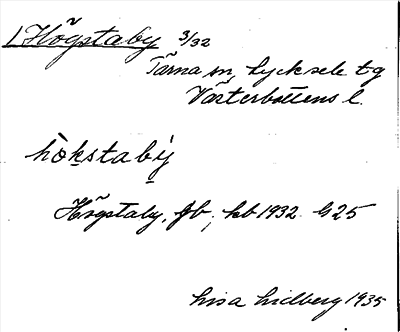 1 Högstaby 3/32
Tärna sn, Lycksele tg
Västerbottens l.
hòkstabẏ
Högstaby, fb, kb 1932 G25
Lisa Lidberg 1935